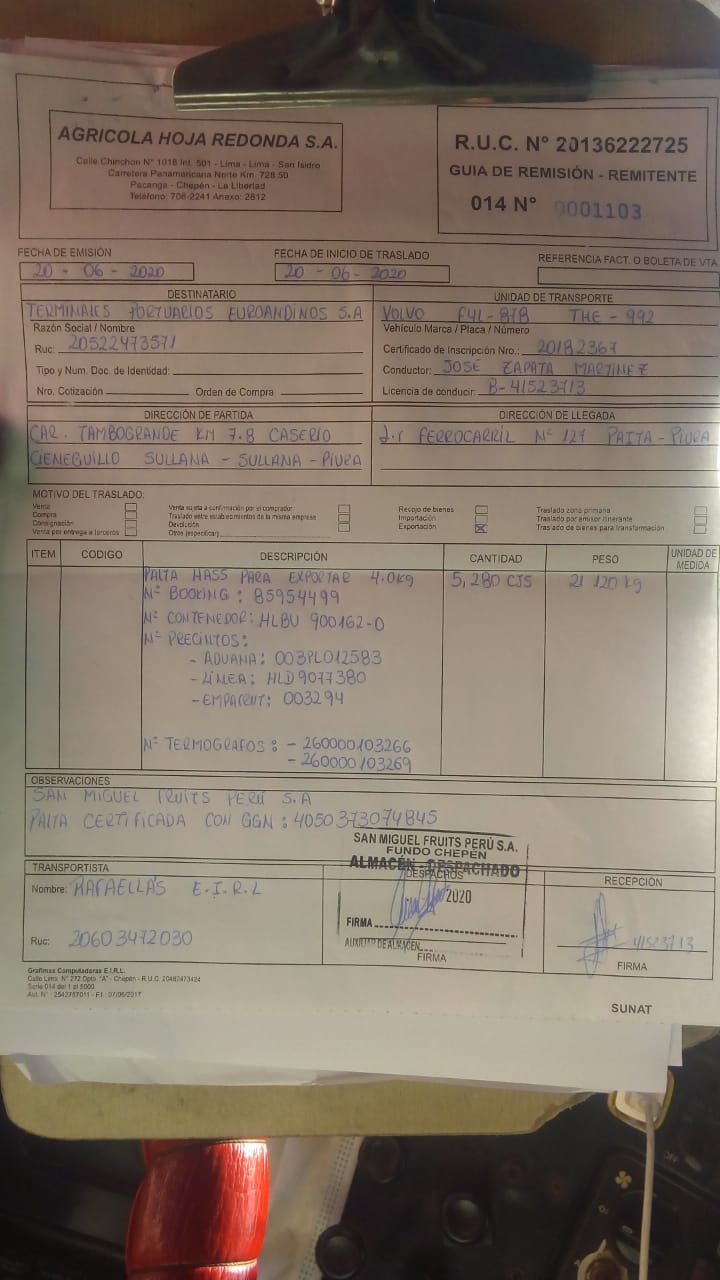 AGRICOLA HOJA REDONDA S.A.
Calle Chinchon N° 1018 Int. 501 - Lima - Lima - San Isidro
Carretera Panamericana Norte Km. 728.50
Pacanga - Chepén - La Libertad
Teléfono: 706-2241 Anexo: 2812
R.U.C. N° 20136222725
GUIA DE REMISIÓN - REMITENTE
014 N° 0001103
FECHA DE EMISIÓN
20 - 06 - 2020
FECHA DE INICIO DE TRASLADO
20 - 06 - 2020
REFERENCIA FACT. O BOLETA DE VTA
DESTINATARIO
TERMINALES PORTUARIOS EUROANDINOS S.A
Razón Social / Nombre
Ruc: 20522473571
Tipo y Num. Doc. de Identidad:
Nro. Cotización Orden de Compra
UNIDAD DE TRANSPORTE
VOLVO F4L-878 THE-992
Vehículo Marca / Placa / Número
Certificado de Inscripción Nro.: 20182367
Conductor: JOSÉ ZAPATA MARTINEZ
Licencia de conducir: B-41523713
DIRECCIÓN DE PARTIDA
CAR. TAMBOGRANDE KM 7.8 CASERIO
CIENEGUILLO SULLANA - SULLANA - PIURA
DIRECCIÓN DE LLEGADA
J.r FERROCARRIL N° 127 PAITA - PIURA
MOTIVO DEL TRASLADO:
Venta
Compra
Consignación
Venta por entrega a terceros
Venta sujeta a confirmación por el comprador
Traslado entre establecimientos de la misma empresa
Devolución
Otros (especificar)
Recojo de bienes
Importación
Exportación X
Traslado zona primaria
Traslado por emisor itinerante
Traslado de bienes para transformación
ITEM CODIGO DESCRIPCIÓN CANTIDAD PESO UNIDAD DE MEDIDA
PALTA HASS PARA EXPORTAR 4.0kg 5,280 CJS 21 120 kg
N° BOOKING : 85954499
N° CONTENEDOR: HLBU 900162-0
N° PRECINTOS:
- ADUANA: 003PL012583
- LÍNEA: HLD9077380
- EMPARENT: 003294
N° TERMOGRAFOS : - 260000103266
- 260000103269
OBSERVACIONES
SAN MIGUEL FRUITS PERÚ S.A
PALTA CERTIFICADA CON GGN : 4050373074845
TRANSPORTISTA
Nombre: RAFAELLA'S E.I.R.L
Ruc: 20603472030
SAN MIGUEL FRUITS PERÚ S.A.
FUNDO CHEPÉN
ALMACÉN - DESPACHADO
DESPACHOS
2020
FIRMA
AUXILIAR DE ALMACÉN
FIRMA
RECEPCIÓN
41523713
FIRMA
Grafimas Computadoras E.I.R.L.
Calle Lima N° 272 Dpto. "A" - Chepén - R.U.C. 20482473424
Serie 014 del 1 al 5000
Aut. N° : 2542757011 - F.I.: 07/06/2017
SUNAT